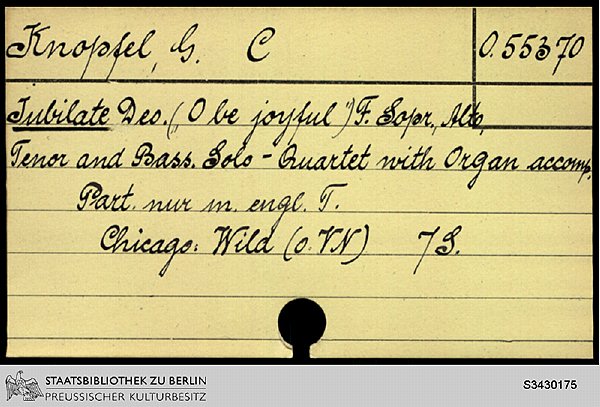 Knopfel, G. C O. 55370
Jubilate Deo. („O be joyful") F. Sopr., Alto,
Tenor and Bass. Solo - Quartet with Organ accomp.
Part. nur m. engl. T.
Chicago: Wild (o. VN) 7 S.
STAATSBIBLIOTHEK ZU BERLIN
PREUSSISCHER KULTURBESITZ
S3430175